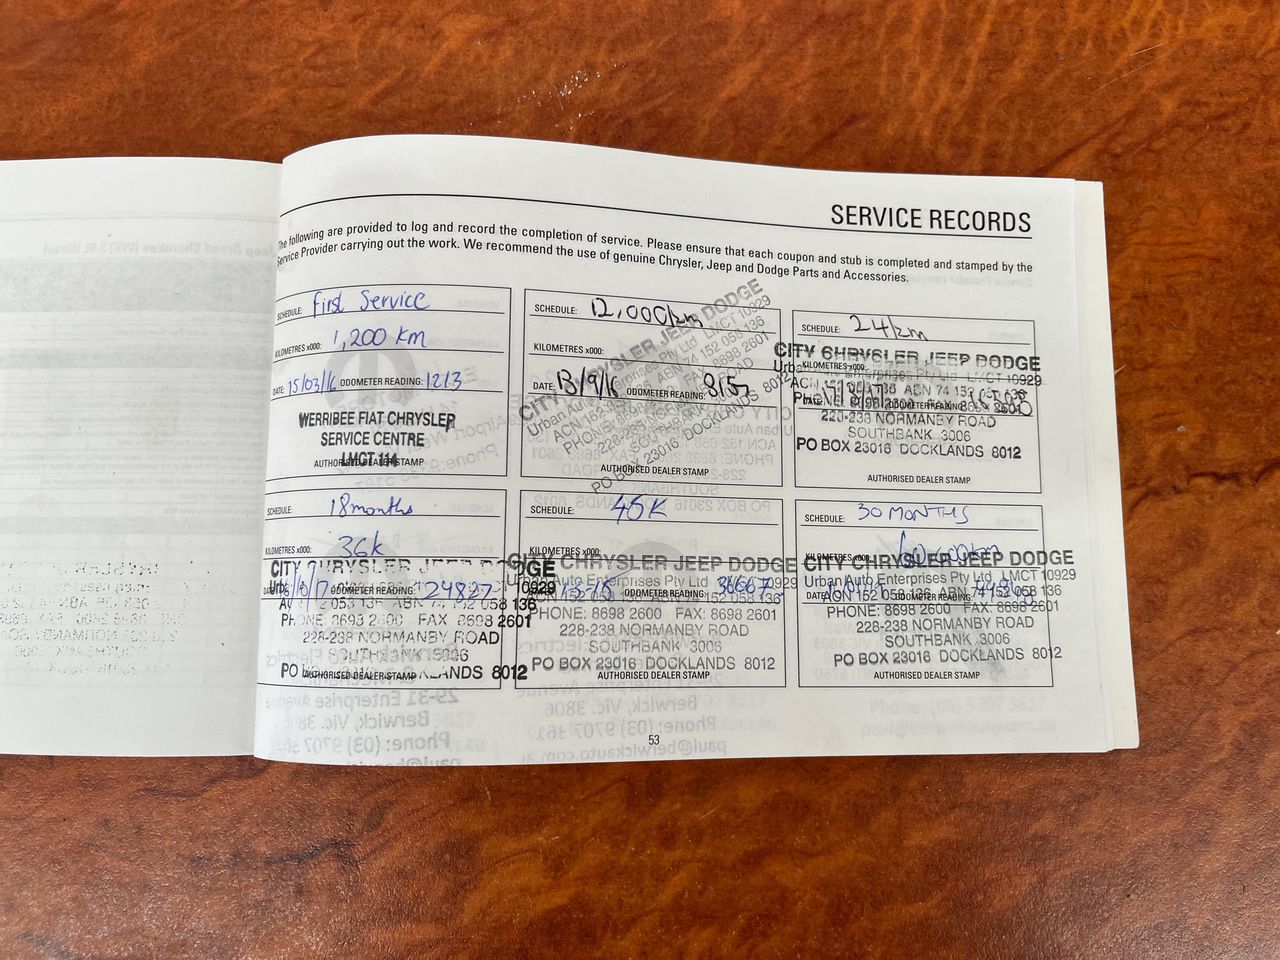 SERVICE RECORDS
The following are provided to log and record the completion of service. Please ensure that each coupon and stub is completed and stamped by the
Service Provider carrying out the work. We recommend the use of genuine Chrysler, Jeep and Dodge Parts and Accessories.
SCHEDULE: First Service
KILOMETRES x000: 1,200 km
DATE: 15/03/16 ODOMETER READING: 1213
WERRIBEE FIAT CHRYSLER
SERVICE CENTRE
LMCT 114
AUTHORISED DEALER STAMP
SCHEDULE: 12,000km
KILOMETRES x000:
DATE: 13/9/16 ODOMETER READING: 8157
CITY CHRYSLER JEEP DODGE
Urban Auto Enterprises Pty Ltd LMCT 10929
ACN 152 058 136 ABN 74 152 058 136
PHONE: 8698 2600 FAX: 8698 2601
228-238 NORMANBY ROAD
SOUTHBANK 3006
PO BOX 23016 DOCKLANDS 8012
AUTHORISED DEALER STAMP
SCHEDULE: 24/km
KILOMETRES x000:
CITY CHRYSLER JEEP DODGE
LMCT 10929
ABN 74 152 058 136
ODOMETER READING:
228-238 NORMANBY ROAD
SOUTHBANK 3006
PO BOX 23016 DOCKLANDS 8012
AUTHORISED DEALER STAMP
SCHEDULE: 18months
KILOMETRES x000: 36k
CITY CHRYSLER JEEP DODGE
ODOMETER READING: 24827 10929
ABN 74 152 058 136
PHONE: 8698 2600 FAX 8698 2601
228-238 NORMANBY ROAD
SOUTHBANK 3006
PO DOCKLANDS 8012
AUTHORISED DEALER STAMP
SCHEDULE: 45K
KILOMETRES x000:
CITY CHRYSLER JEEP DODGE
Urban Auto Enterprises Pty Ltd LMCT 10929
ODOMETER READING: 36667
PHONE: 8698 2600 FAX: 8698 2601
228-238 NORMANBY ROAD
SOUTHBANK 3006
PO BOX 23016 DOCKLANDS 8012
AUTHORISED DEALER STAMP
SCHEDULE: 30 MONTHS
KILOMETRES x000:
CITY CHRYSLER JEEP DODGE
Urban Auto Enterprises Pty Ltd LMCT 10929
ACN 152 058 136 ABN 74 152 058 136
DATE: ODOMETER READING:
PHONE: 8698 2600 FAX: 8698 2601
228-238 NORMANBY ROAD
SOUTHBANK 3006
PO BOX 23016 DOCKLANDS 8012
AUTHORISED DEALER STAMP
53